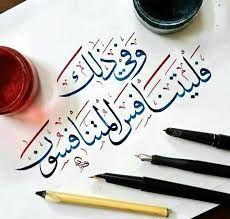 وَفِي ذَلِكَ
فَلْيَتَنَافَسِ الْمُتَنَافِسُونَ